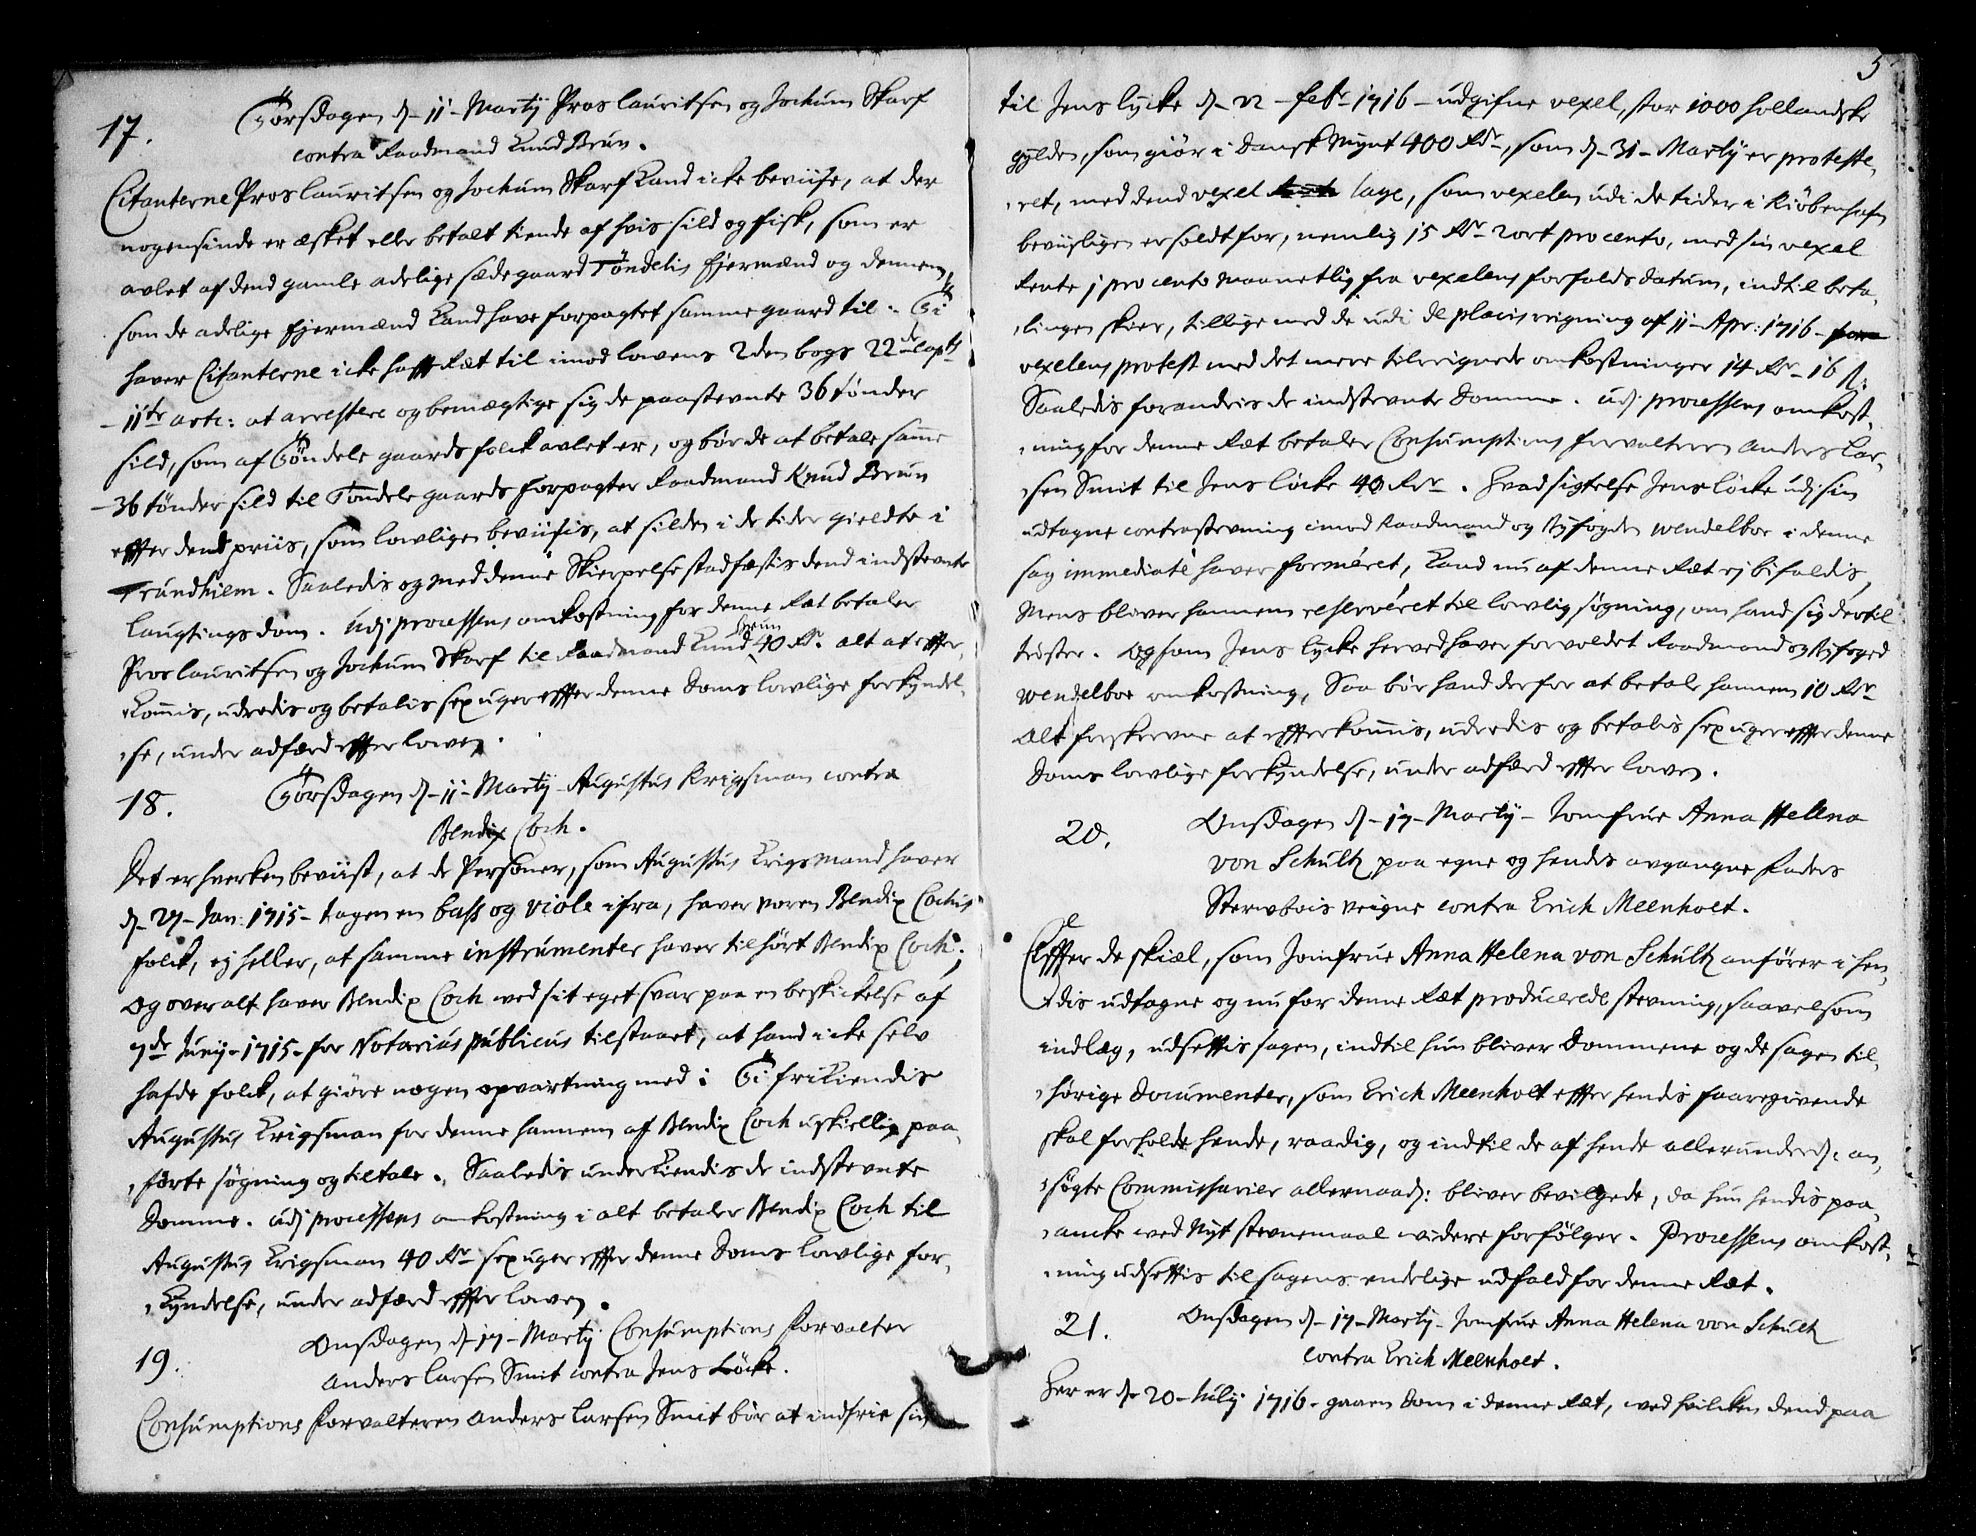 17. Torsdagen d. 11 Martÿ Pros Lauritsen og Jochum Skarf
contra Raadmand Knud Brun.
Citanterne Pros Lauritsen og Jochum Skarf kand icke beviise, at der
nogensinde er æsket eller betalt tiende af hvis sild og fisk, som er
avlet af dend gamle adelige sædegaard Tøndelis fiermænd og dennem,
som de adelige fiermænd kand have forpagtet samme gaard til. Ti
haver Citanterne icke hafft Ræt til imod lowens 2den bogs 22de Capts
11te artc: at arrestere og bemægtige sig de paastevnte 36 tønder
sild, som af Tøndele gaards folck avlet er, og bør de at betale samme
36 tønder sild til Tøndele gaards forpagter Raadmand Knud Brun
effter dend priis, som lowligen beviisis, at silden i de tider gieldte i
Trundhiem. Saaledis og med denne Skierpelse stadfæstis dend indstevnte
laugtings dom. Udj processens omkostning for denne Ræt betaler
Pros Lauritsen og Jochum Skarf til Raadmand Knud Brun 40 Rdr. alt at effter-
kommis, udredis og betalis sex uger effter denne Doms lowlige forkyndel-
se, under adfærd effter lowen.
18. Torsdagen d. 11 Martÿ Augustus Krigsman contra
Bendix Coch.
Det er hverken beviist, at de Personer, som Augustus Krigsmand haver
d. 27 Jan: 1715 tagen en bass og viole ifra, haver voren Bendix Cochis
folck, ej heller, at samme instrumenter haver tilhørt Bendix Coch;
Og overalt haver Bendix Coch ved sit eget svar paa en beskickelse af
7de Junÿ 1715 for Notarius publicus tilstaaet, at hand icke selv
hafde folck, at giøre nogen opvartning med: Ti frikiendis
Augustus Krigsman for denne hannem af Bendix Coch uskiellig paa-
førte søgning og tiltale. Saaledis underkiendis de indstevnte
Domme. Udj processens omkostning i alt betaler Bendix Coch til
Augustus Krigsman 40 Rdr sex uger effter denne Doms lowlige for-
kyndelse, under adfærd effter lowen.
19. Onsdagen d. 17 Martÿ Consumptions Forvalter
Anders Larsen Smit contra Jens Löcke.
Consumptions Forvalteren Anders Larsen Smit bør at indfrie sin
5
til Jens Lÿcke d. 22 Febr 1716 udgifne vexel, stor 1000 hollandske
gylden, som giør i Dansk Mynt 400 Rdr, som d. 31 Martÿ er proteste-
ret, med dend vexel lage, som vexelen udi de tider i Kiöbenhafn
beviisligen er soldt for, nemlig 15 Rdr 2 ort pro cento, med sin vexel
Rente j pro cento maanetlig fra vexelens forfalds datum, indtil beta-
lingen skier, tillige med de udi de placis reigning af 11 Apr: 1716
vexelens protest med det mere tilreignede omkostninger 14 Rdr 16 s:
Saaledis forandris de indstevnte Domme. Udj processens omkost-
ning for denne Ræt betaler Consumptions forvalteren Anders Lar-
sen Smit til Jens Löcke 40 Rdr. Hvad sigtelse Jens Löcke udj sin
udtagne contrastevning imod Raadmand og Byfogden Wendelboe i denne
sag immediatè haver formêret, kand nu af denne Ræt ej bifaldis,
mens bliver hannem reserveret til lowlig søgning, om hand sig dertil
trøster. Og som Jens Lycke herved haver forvoldet Raadmand og Byfoged
Wendelboe omkostning, Saa bør hand derfor at betale hannem 10 Rdr
Alt forskrevne at effterkommis, udredis og betalis sex uger effter denne
Doms lowlige forkyndelse, under adfærd effter lowen.
20. Onsdagen d. 17 Martÿ Jomfrue Anna Hellena
von Schultz paa egne og hendis avgangne Faders
Sterwbois veigne contra Erich Meenholt.
Effter de skiæl, som Jomfrue Anna Helena von Schultz anfører i hen-
dis udtagne og nu for denne Ræt producerede stevning, saavelsom
indlæg, udsettis sagen, indtil hun bliver Dommene og de sagen til-
hørige Documenter, som Erich Meenholt effter hendis foregivende
skal forholde hende, raadig, og indtil de af hende allerunderd: an-
søgte Commissarier allernaad: bliver bevilgede, da hun hendis paa-
ancke ved Nyt stevnemaal widere forfølger. Processens omkost-
ning udsettis til sagens endelige udfald for denne Ræt.
21. Onsdagen d. 17 Martÿ Jomfrue Anna Helena von Schultz
contra Erich Meenholt.
Her er d. 20 Julÿ 1716 gaaen Dom i denne Ræt, ved hvilcken dend paa